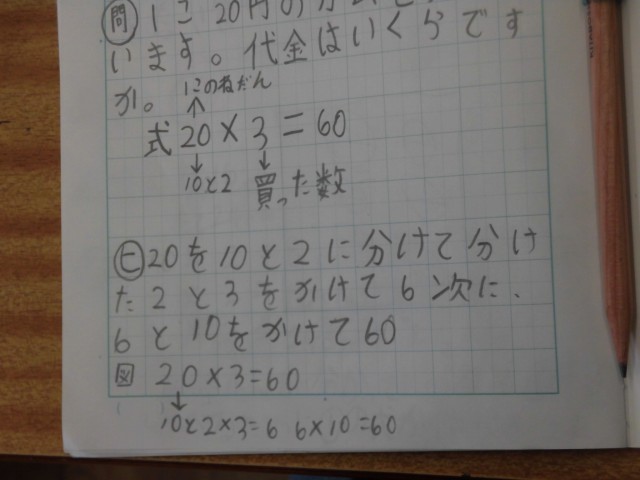 問 1こ20円の
います。代金はいくらです
か。
1このねだん
式 20×3=60
10と2 買った数
ヒ 20を10と2に分けて分け
た2と3をかけて6次に、
6と10をかけて60
図 20×3=60
10と2×3=6 6×10=60